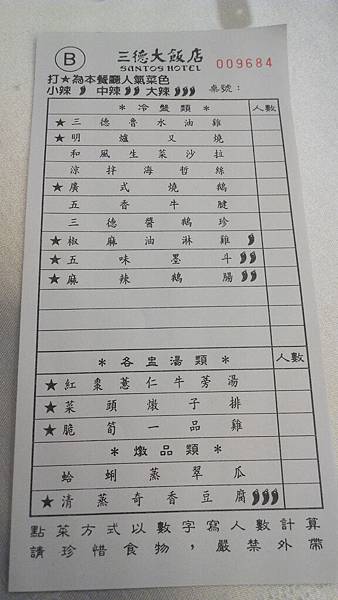 B 三德大飯店
SANTOS HOTEL 009684
打★為本餐廳人氣菜色
小辣 中辣 大辣 桌號：
*冷盤類* 人數
★三德魯水油雞
★明爐叉燒
和風生菜沙拉
涼拌海哲絲
★廣式燒鵝
五香牛腱
三德醬鵝珍
★椒麻油淋雞
★五味墨斗
★麻辣鵝腸
*各盅湯類* 人數
★紅棗薏仁牛蒡湯
★菜頭燉子排
★脆筍一品雞
*燉品類*
蛤蜊蒸翠瓜
★清蒸奇香豆腐
點菜方式以數字寫人數計算
請珍惜食物，嚴禁外帶